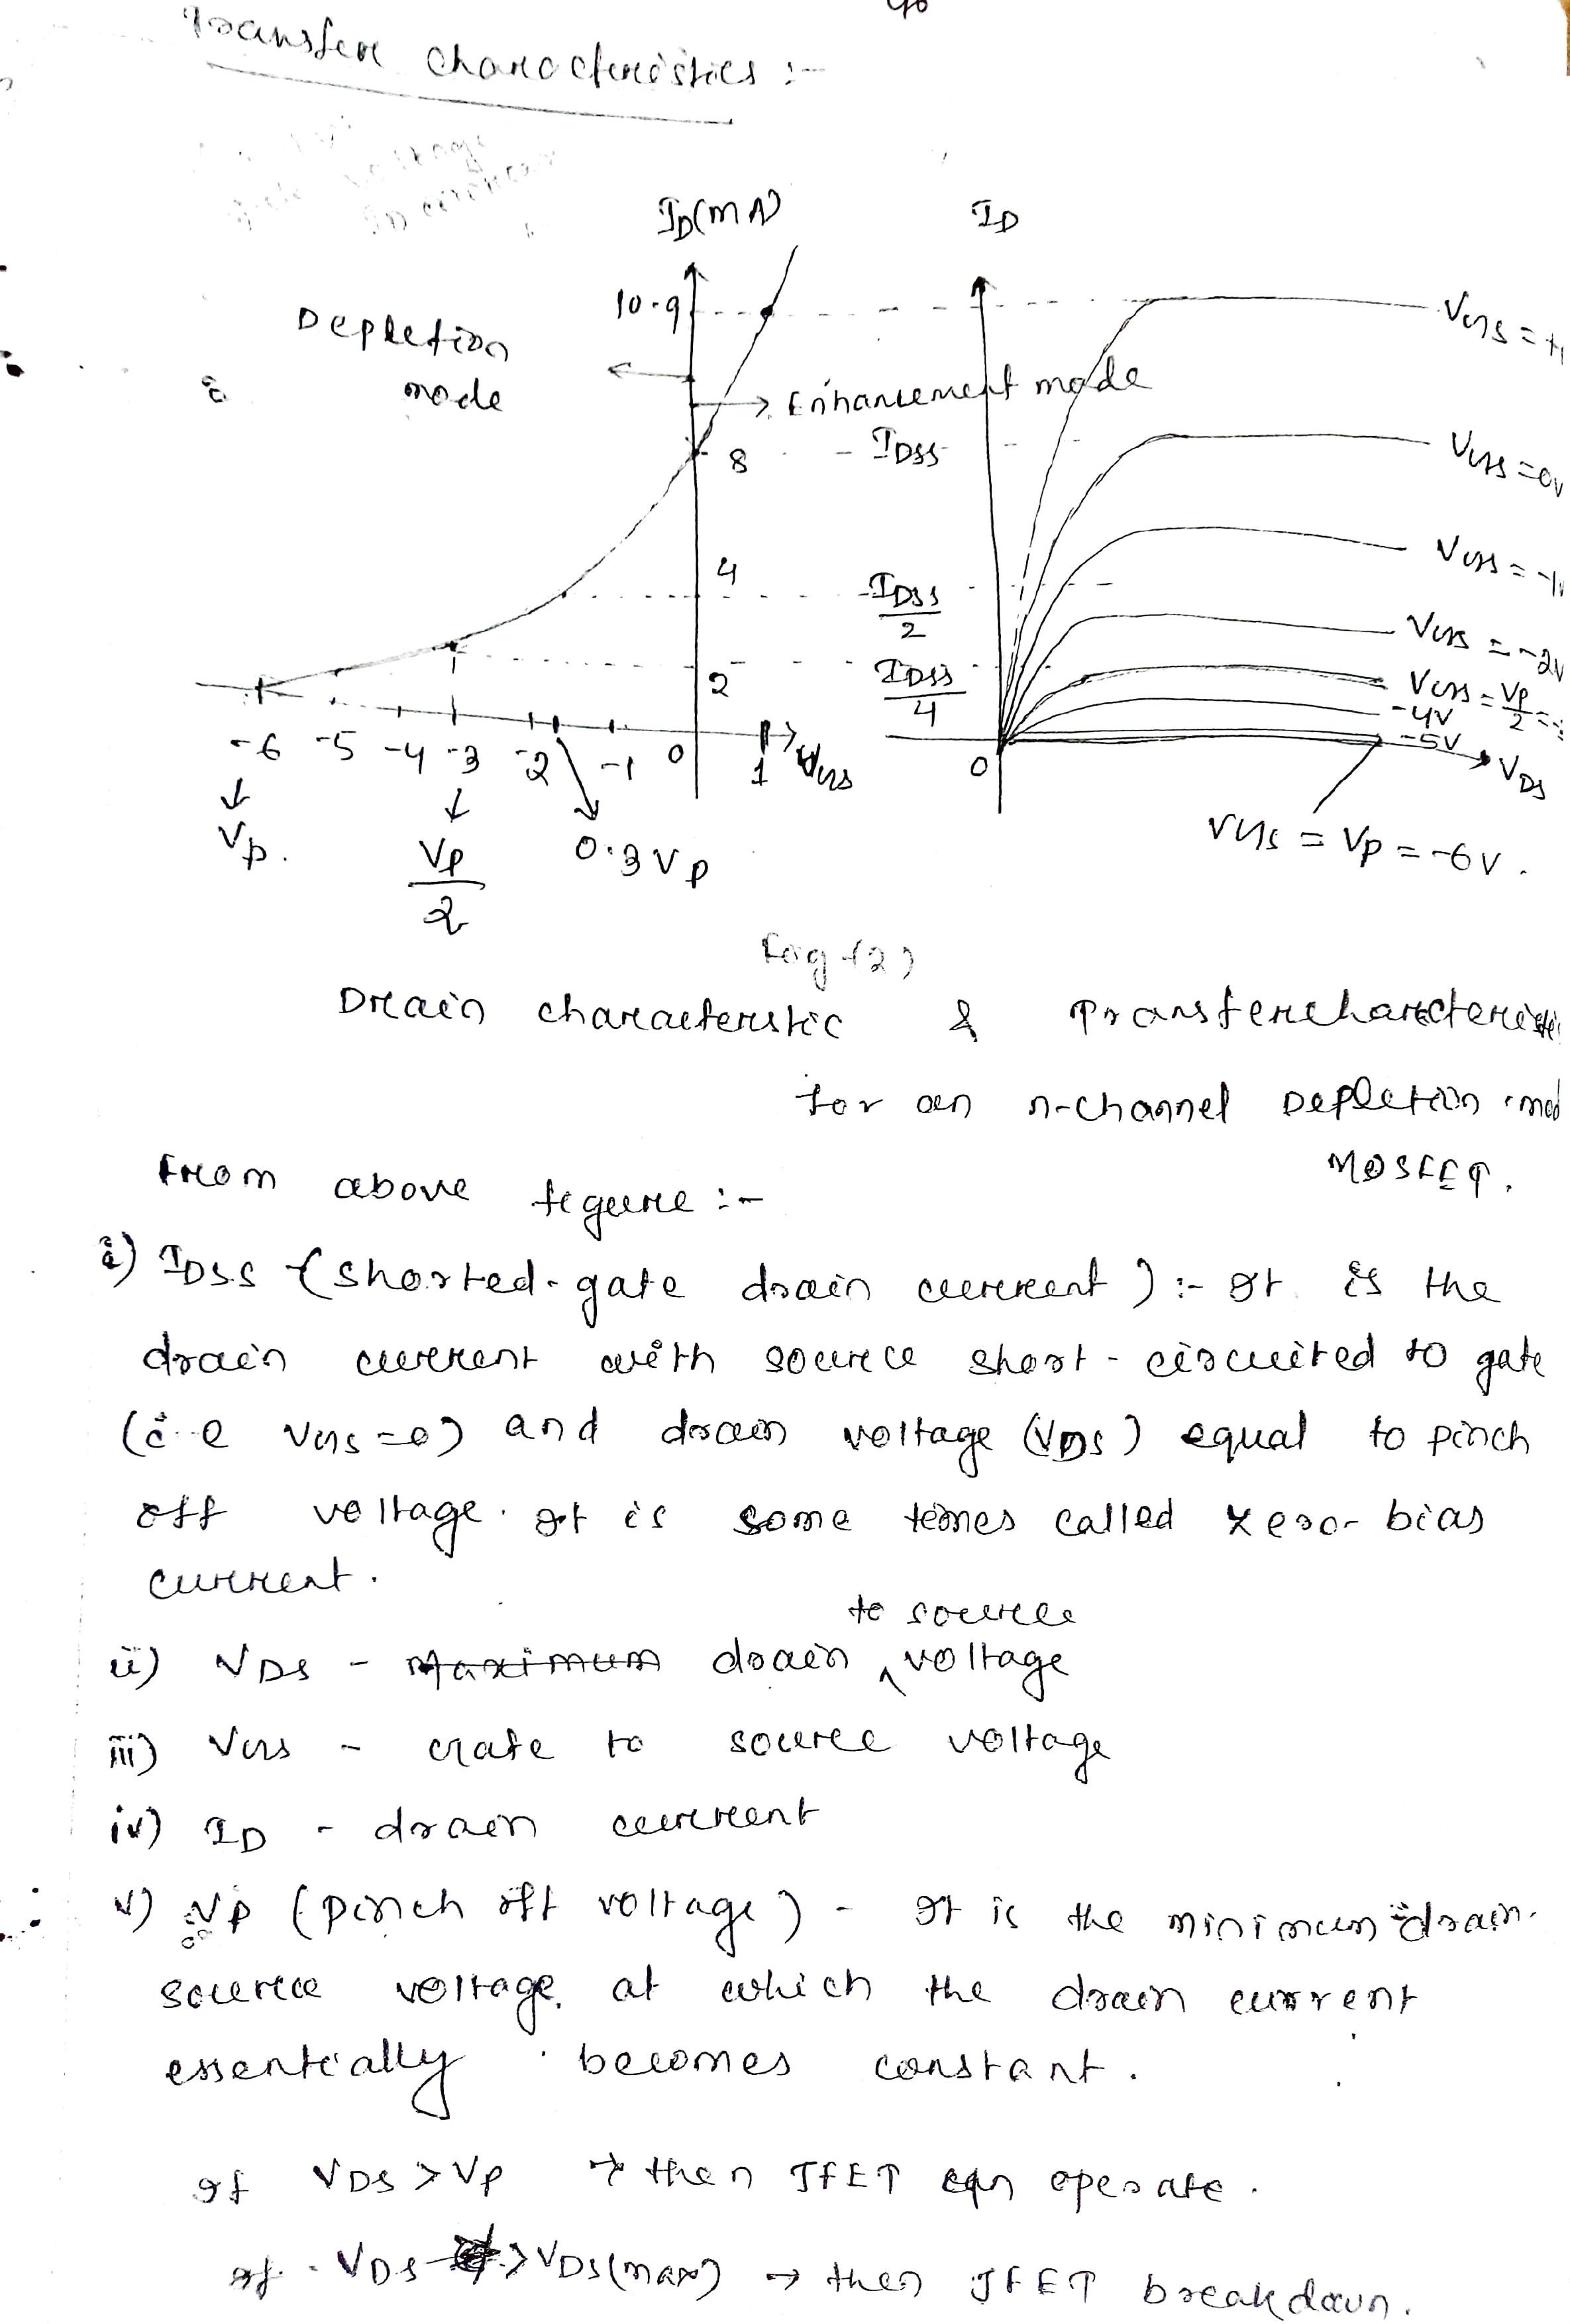 Transfer characteristics :-
ID(mA)
ID
10.9
Depletion
mode
Enhancement mode
8
IDSS
4
IDSS/2
2
IDSS/4
VGS = +1
VGS = 0V
VGS = -1V
VGS = -2V
VGS = VP/2 = -3
-4V
-5V
-6 -5 -4 -3 -2 -1 0 1 VGS
0
VDS
Vp.
VP/2
0.3 VP
VGS = VP = -6V.
Fig (2)
Drain characteristic & Transfercharacteristic
for an n-channel Depletion mod
MOSFET.
From above figure :-
i) IDSS (shorted-gate drain current) :- It is the
drain current with source short-circuited to gate
(i.e VGS=0) and drain voltage (VDS) equal to pinch
off voltage. It is some times called zero-bias
current.
ii) VDS - Maximum drain to source voltage
iii) VGS - Gate to source voltage
iv) ID - drain current
v) VP (pinch off voltage) - It is the minimum drain-
source voltage at which the drain current
essentially becomes constant.
If VDS > VP → then JFET can operate.
If VDS > VDS(max) → then JFET breakdown.